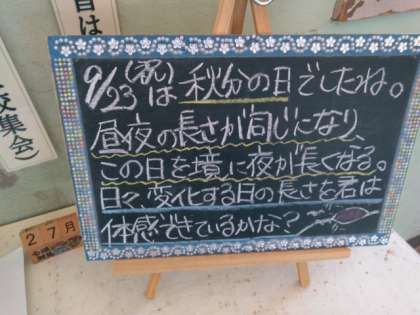 9/23(祝)は秋分の日でしたね。
昼夜の長さが同じになり、
この日を境に夜が長くなる。
日々、変化する日の長さを君は
体感できているかな?
日は
集会)
27月